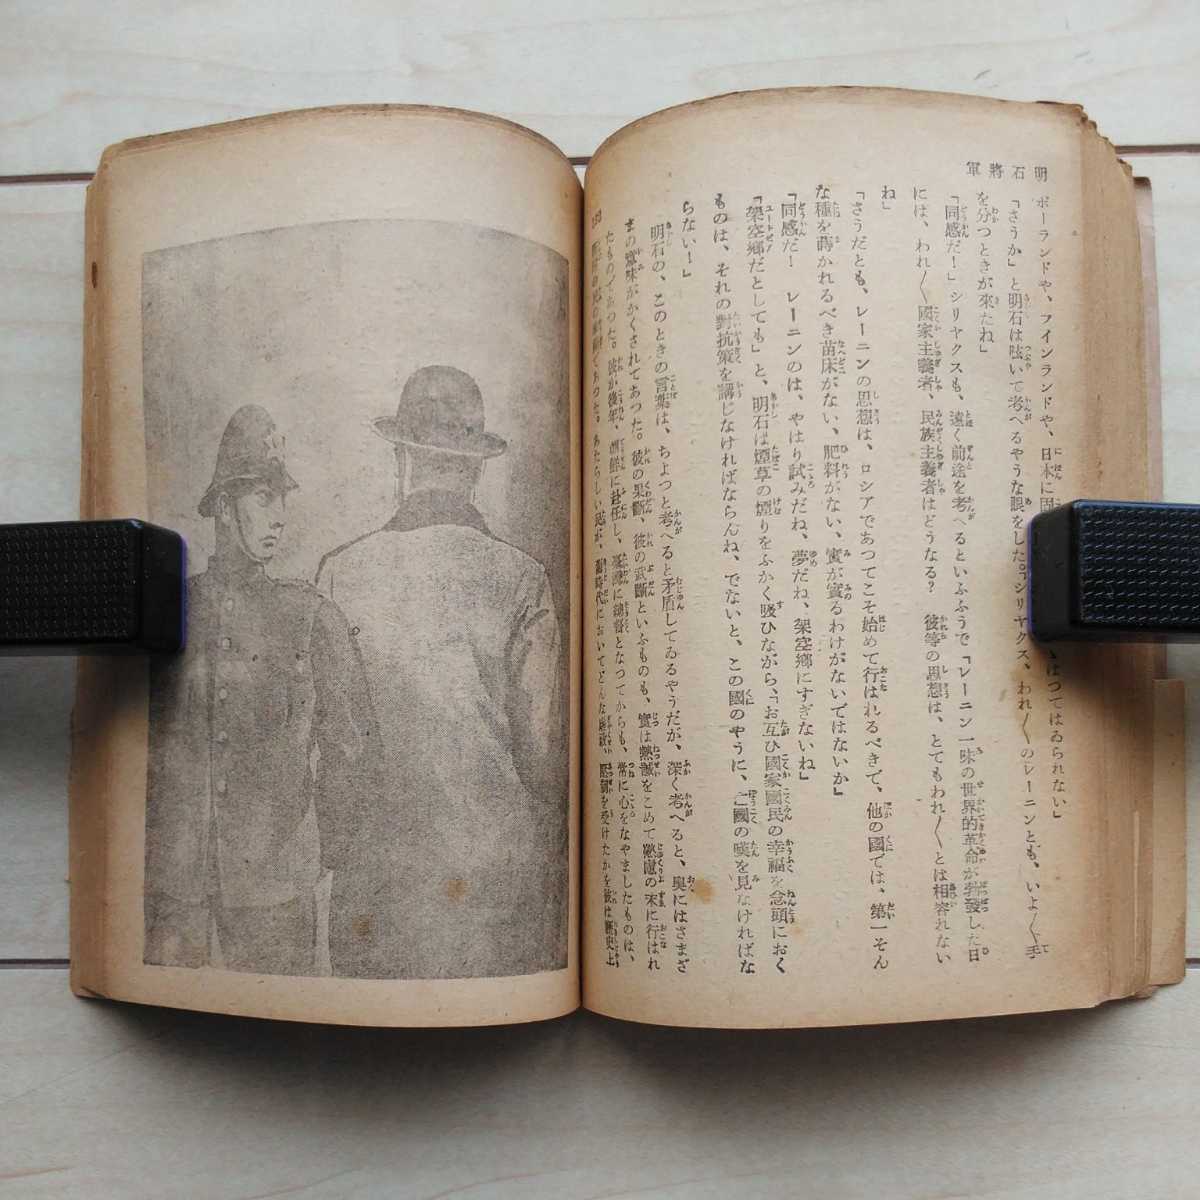 明石將軍
ポーランドや、フインランドや、日本に
はつてはゐられない」
「さうか」と明石は呟いて考へるやうな眼をした。「シリヤクス、われ〳〵のレーニンとも、いよ〳〵手
を分つときが來たね」
「同感だ！」シリヤクスも、遠く前途を考へるといふふうで「レーニン一味の世界的革命が勃發した日
には、われ〳〵國家主義者、民族主義者はどうなる？　彼等の思想は、とてもわれ〳〵とは相容れない
ね」
「さうだとも、レーニンの思想は、ロシアであつてこそ始めて行はれるべきで、他の國では、第一そん
な種を蒔かれるべき苗床がない、肥料がない、實が實るわけがないではないか」
「同感だ！　レーニンのは、やはり試みだね、夢だね、架空郷にすぎないね」
「架空郷だとしても」と、明石は煙草の煙りをふかく吸ひながら、「お互ひ國家國民の幸福を念頭におく
ものは、それの對抗策を講じなければならんね、でないと、この國のやうに、亡國の嘆を見なければな
らない！」
明石の、このときの言葉は、ちよつと考へると矛盾してゐるやうだが、深く考へると、奥にはさまざ
まの意味がかくされてあつた。彼の果斷、彼の武斷といふものも、實は熱誠をこめて熟慮の末に行はれ
たものであつた。彼が後年、朝鮮に赴任し、臺灣に總督となつてからも、常に心をなやましたものは、
であつた。あたらしい民が、
時代においてどんな
壓制を受けたかを彼は歴史上